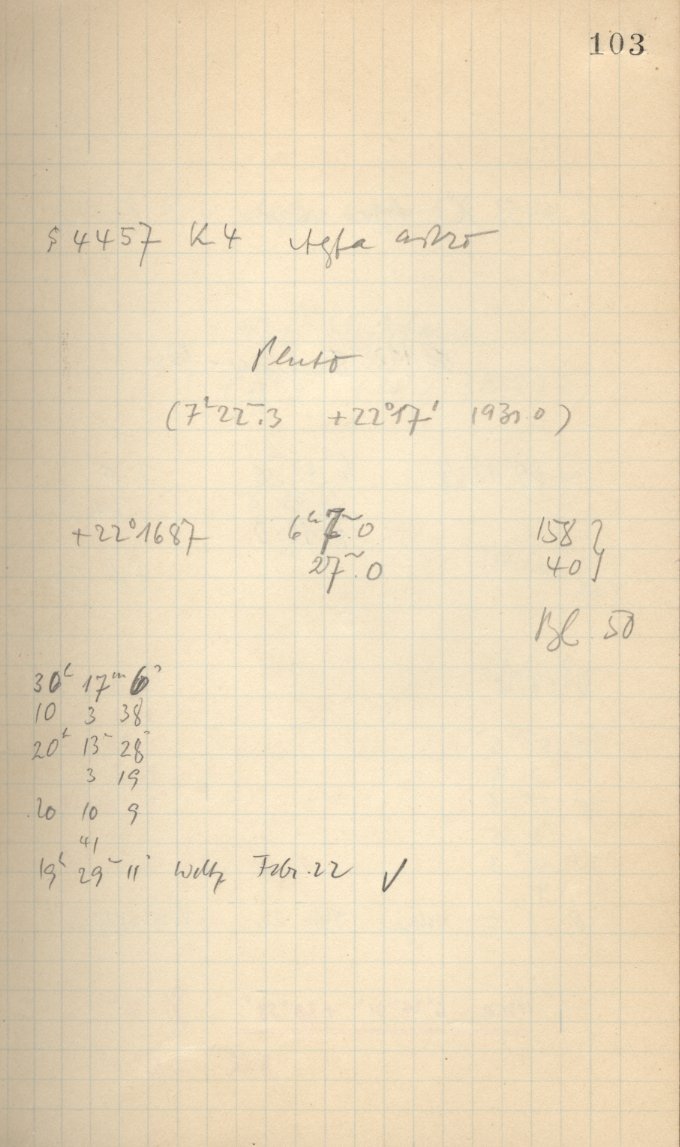 103
S 4457 K4 Agfa astro
Pluto
(7ʰ22ᵐ.3 +22°17' 1930.0)
+22°1687 6ʰ7ᵐ.0 158 }
27ᵐ.0 40 }
Bl. 50
30ʰ 17ᵐ 6ˢ
10 3 38
20ʰ 13ᵐ 28ˢ
3 19
20 10 9
41
19ʰ 29ᵐ 11ˢ Febr. 22 ✓